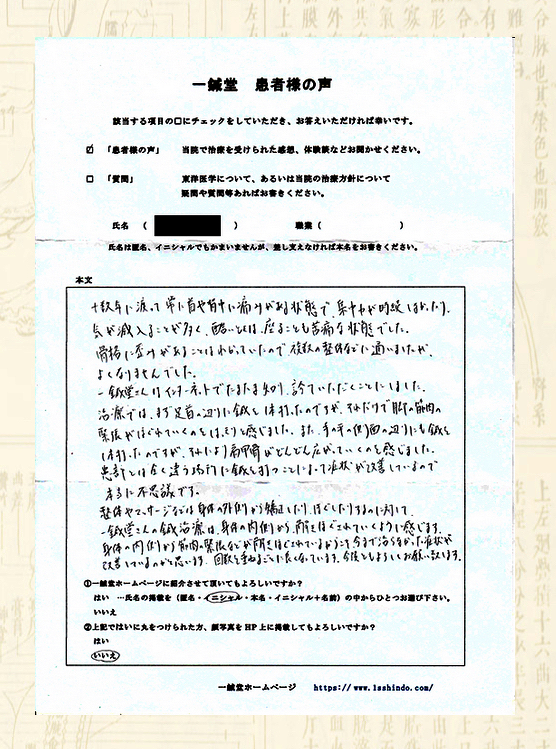 一鍼堂 患者様の声
該当する項目の□にチェックをしていただき、お答えいただければ幸いです。
☑ 「患者様の声」 当院で治療を受けられた感想、体験談などお聞かせください。
□ 「質問」 東洋医学について、あるいは当院の治療方針について
疑問や質問等あればお書きください。
氏名 ( ) 職業 ( )
氏名は匿名、イニシャルでもかまいませんが、差し支えなければ本名をお書きください。
本文
十数年に渡って常に首や背中に痛みがある状態で、集中力が時々
気が滅入ることが多く、酷い時は、座ることも苦痛な状態でした。
骨格に歪みがあることはわかっていたので複数の整体などに通いましたが、
よくなりませんでした。
一鍼堂さんはインターネットでたまたま知り、診ていただくことにしました。
治療では、まず足首の辺りに鍼を1本打ったのですが、それだけで脚の筋肉の
緊張がほぐれていくのをはっきりと感じました。また、手の平の側面の辺りにも鍼を
1本打ったのですが、それにより肩甲骨がどんどん広がっていくのを感じました。
患部とは全く違う場所に鍼を打つことによって症状が改善しているので
本当に不思議です。
整体やマッサージなどは身体の外側から矯正したり、ほぐしたりするのに対して、
一鍼堂さんの鍼治療は、身体の内側から、解きほぐされていくように感じます。
身体の内側から筋肉の緊張などが解きほぐされているからこそ今まで治らなかった症状が
改善しているのかと思います。回数を重ねるごとに良くなっています。今後ともよろしくお願い致します。
①一鍼堂ホームページに紹介させて頂いてもよろしいですか？
はい …氏名の掲載を（匿名・イニシャル・本名・イニシャル＋名前）の中からひとつお選び下さい。
いいえ
②上記ではいに丸をつけられた方、顔写真をHP上に掲載してもよろしいですか？
はい
いいえ
一鍼堂ホームページ https://www.1sshindo.com/